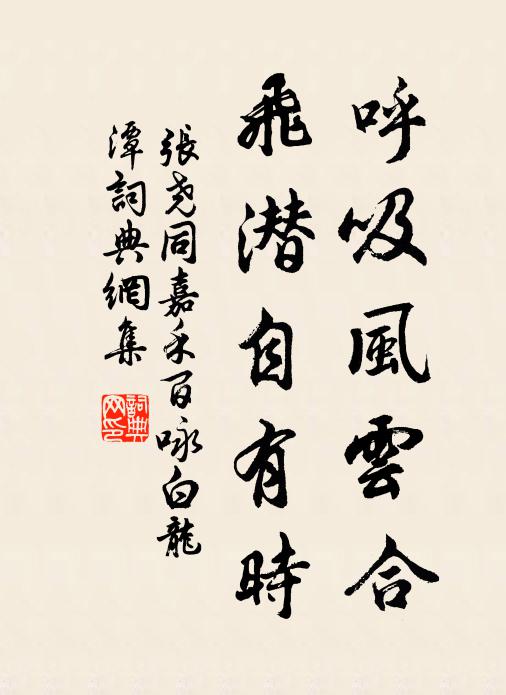 呼吸風雲合
飛潜自有時
張尧同嘉禾百咏白龍
潭詞典網集
詞典
网印